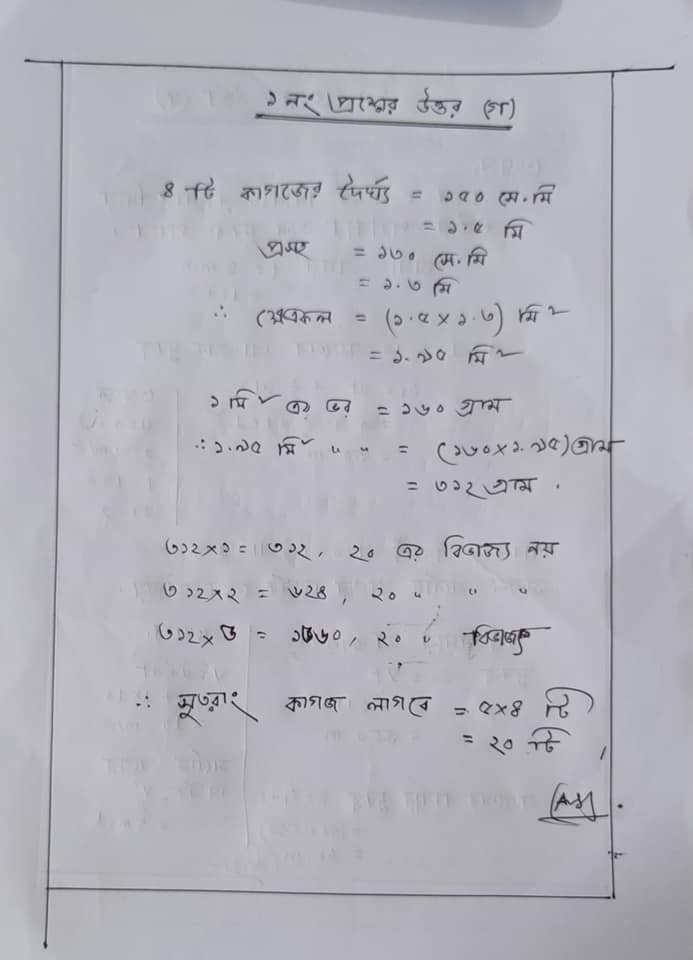 ১ নং প্রশ্নের উত্তর (গ)
৪ টি কাগজের দৈর্ঘ্য = ১৫০ সে.মি
= ১.৫ মি
প্রস্থ = ১৩০ সে.মি
= ১.৩ মি
∴ ক্ষেত্রফল = (১.৫ × ১.৩) মি²
= ১.৯৫ মি²
১ মি² এর ভর = ১৬০ গ্রাম
∴ ১.৯৫ মি² " " = (১৬০×১.৯৫) গ্রাম
= ৩১২ গ্রাম .
৩১২×১ = ৩১২, ২০ এর বিভাজ্য নয়
৩১২×২ = ৬২৪, ২০ " " "
৩১২× = ১৫৬০, ২০ " বিভাজ্য
∴ সুতরাং কাগজ লাগবে = ৫×৪ টি
= ২০ টি
(Ans) .